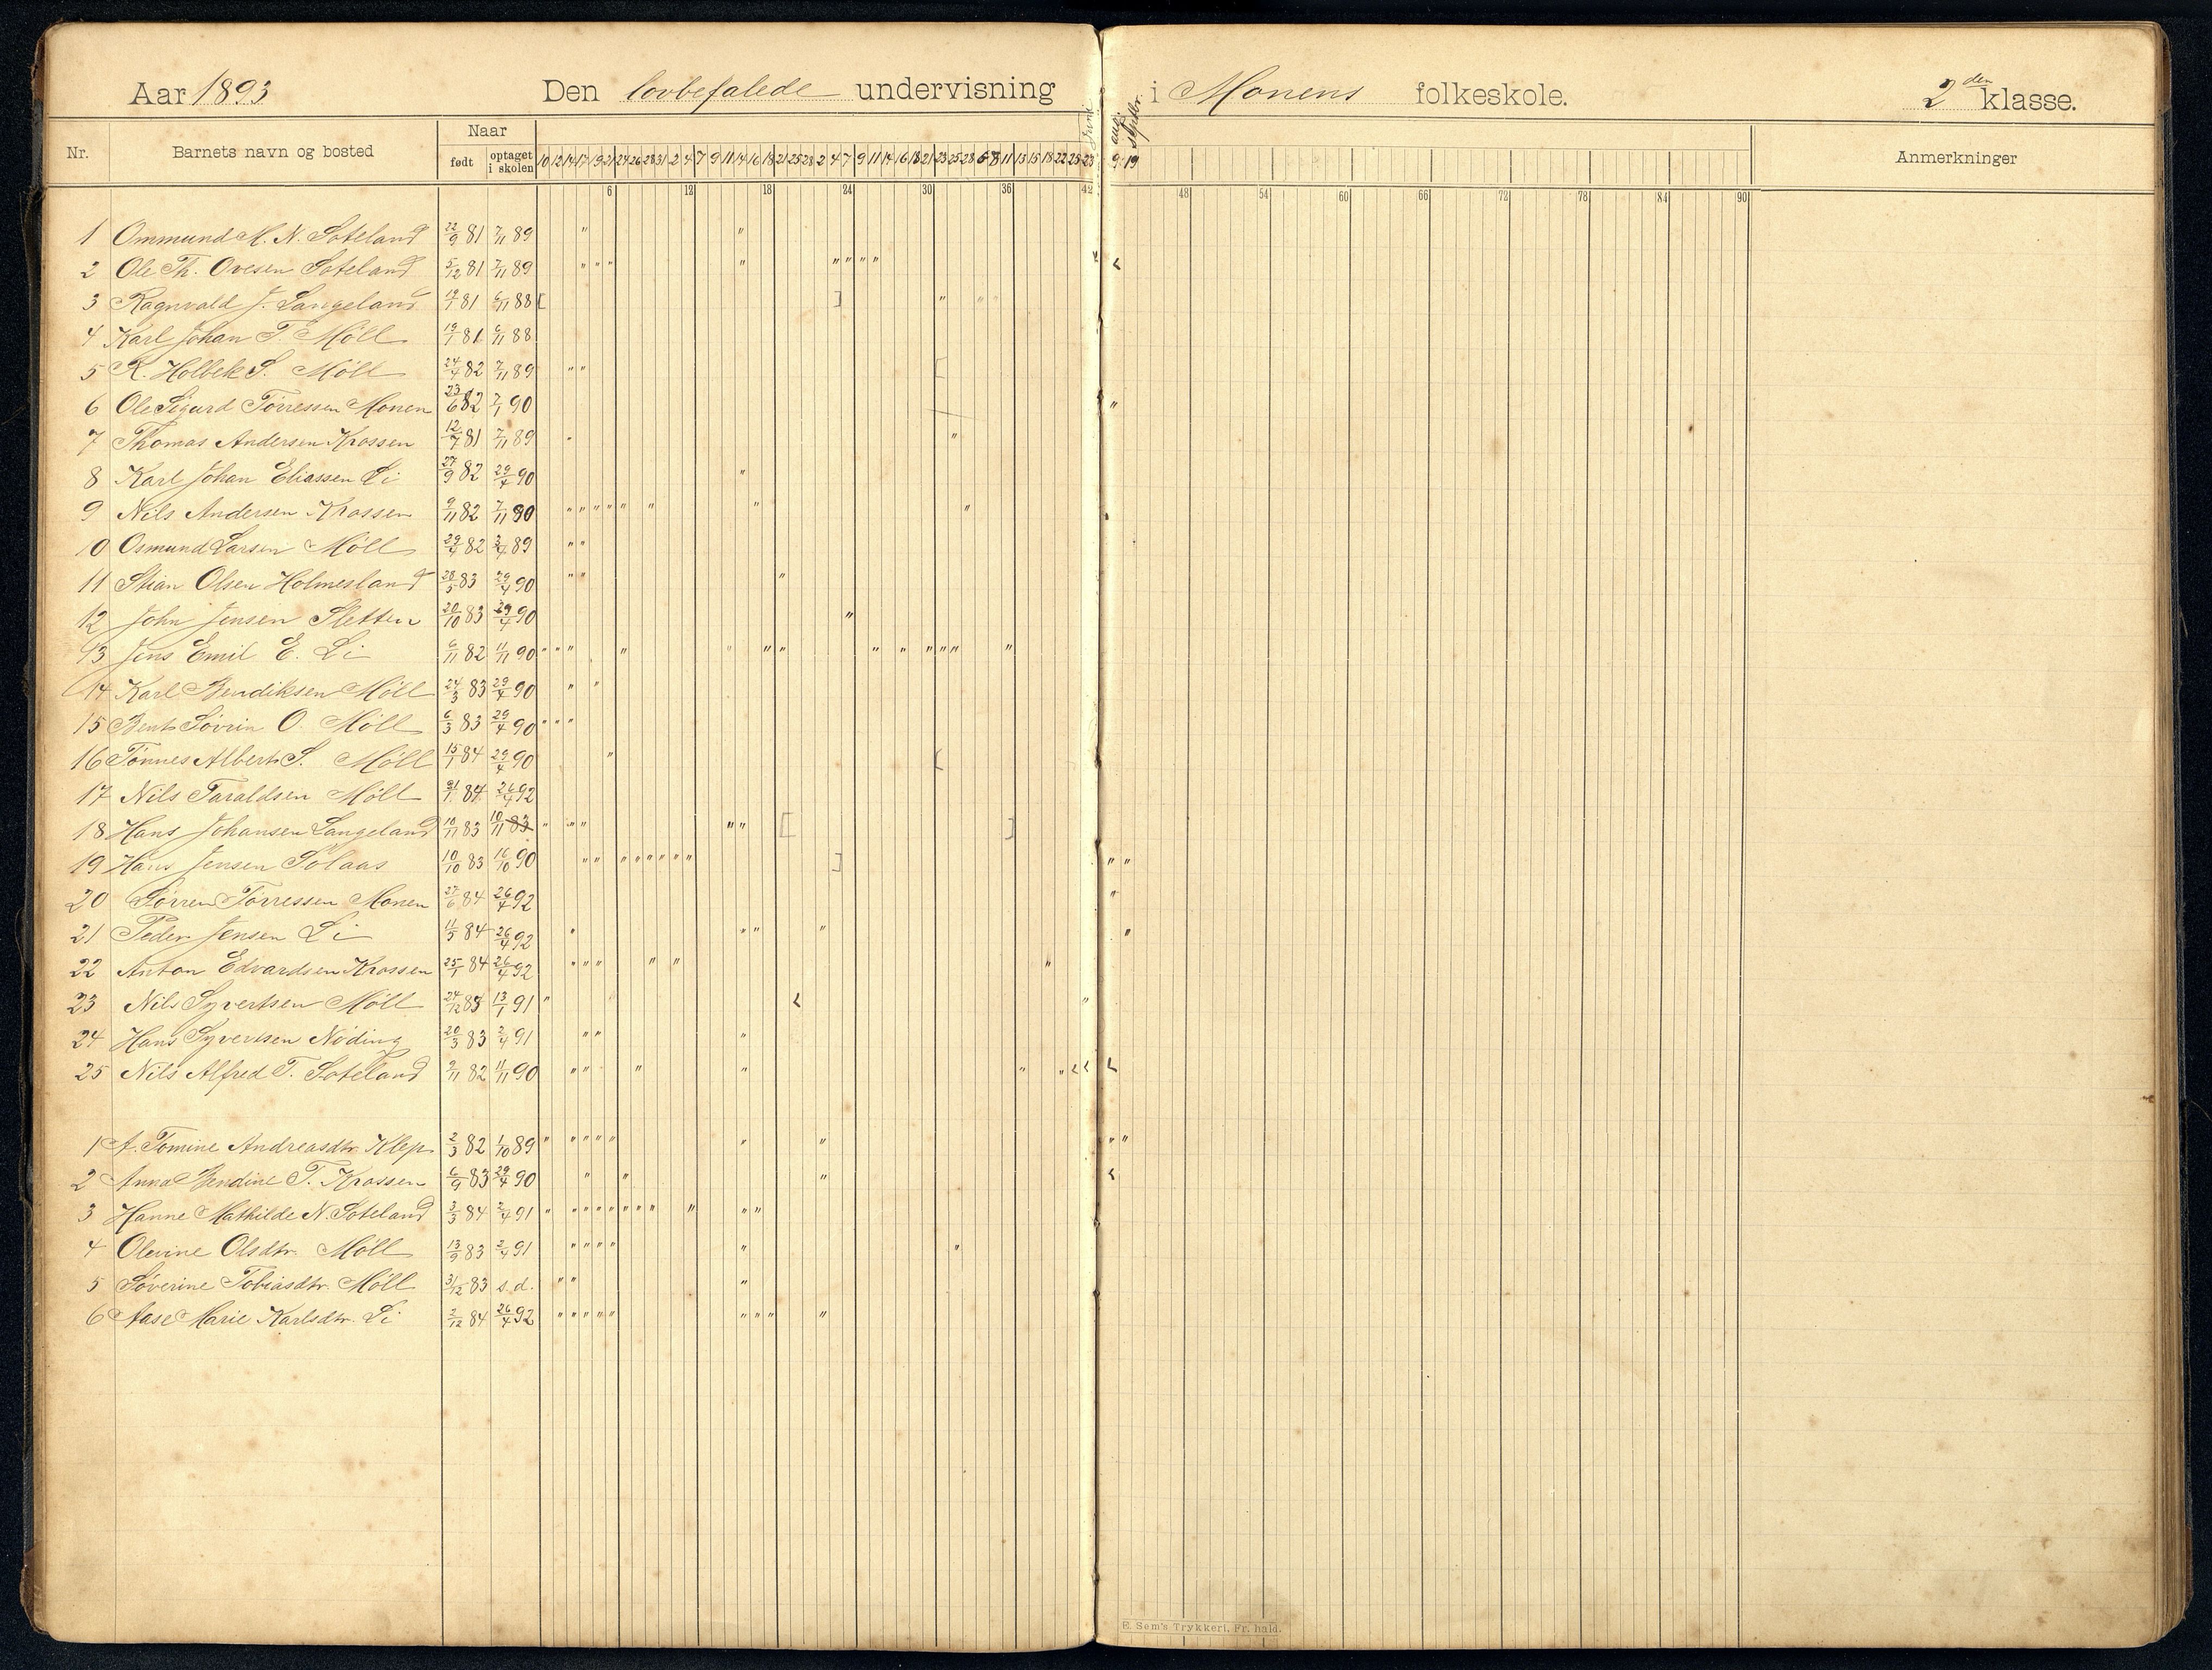 Aar 1893 Den lovbefalede undervisning i Monens folkeskole. 2den klasse.
Nr. Barnets navn og bosted Naar født optaget i skolen Juni aug. septbr. Anmerkninger
10 12 14 17 19 21 24 26 28 31 2 4 7 9 11 14 16 18 21 25 28 2 4 7 9 11 14 16 18 21 23 25 28 6 8 11 13 15 18 22 25 23 9 19
6 12 18 24 30 36 42 48 54 60 66 72 78 84 90
1 Ommund M. N. Soteland 22/9 81 7/11 89 " "
2 Ole Th. Ovesen Soteland 5/12 81 7/11 89 " " " " " " " "
3 Ragnvald J. Langeland 19/1 81 6/11 88 [ ] "
4 Karl Johan T. Möll 19/1 81 6/11 88
5 R. Holbek S. Möll 24/4 82 7/11 89 " " [
6 Ole Sigurd Tørressen Monen 23/6 82 7/1 90 "
7 Thomas Andersen Krossen 12/7 81 7/11 89 " "
8 Karl Johan Eliassen Li 27/9 82 29/4 90 "
9 Nils Andersen Krossen 9/11 82 7/11 90 " " " " " " " "
10 Osmund Larsen Möll 29/4 82 3/4 89 " "
11 Stian Olsen Holmesland 28/5 83 29/4 90 " " "
12 John Jensen Sletten 20/10 83 29/4 90 "
13 Jens Emil E. Li 6/11 82 11/11 90 " " " " " " " " " " " " "
14 Karl Bendiksen Möll 24/3 83 29/4 90 " "
15 Bent Sövrin O. Möll 6/3 83 29/4 90 " " "
16 Tønnes Albert S. Möll 15/1 84 29/4 90 " [
17 Nils Taraldsen Möll 31/1 84 26/4 92
18 Hans Johansen Langeland 10/11 83 10/11 83 " " " " " [ ]
19 Hans Jensen Solaas 10/10 83 16/10 90 " " " " " " " " ] " "
20 Sørren Tørressen Monen 27/6 84 26/4 92 "
21 Peder Jensen Li 11/5 84 26/4 92 " " " " "
22 Anton Edvardsen Krossen 25/1 84 26/4 92 " " " " " "
23 Nils Syvertsen Möll 24/12 83 13/1 91 " "
24 Hans Syvertsen Nöding 20/3 83 2/4 91 " " "
25 Nils Alfred T. Soteland 9/11 82 11/11 90 " " " " " "
1 A. Tomine Andreasdtr. Klep 2/3 82 1/10 89 " " " " " " " " "
2 Anna Bendine T. Krossen 6/9 83 29/4 90 " " "
3 Hanne Mathilde N. Soteland 3/3 84 2/4 91 " " " " " " " " " " "
4 Olevine Olsdtr. Möll 13/9 83 2/4 91 " " " " " "
5 Söverine Tobiasdtr. Möll 3/12 83 s.d. " " "
6 Aase Marie Karlsdtr. Li 2/12 84 26/4 92 " " " " " " " " "
E. Sem's Trykkeri, Fr. hald.